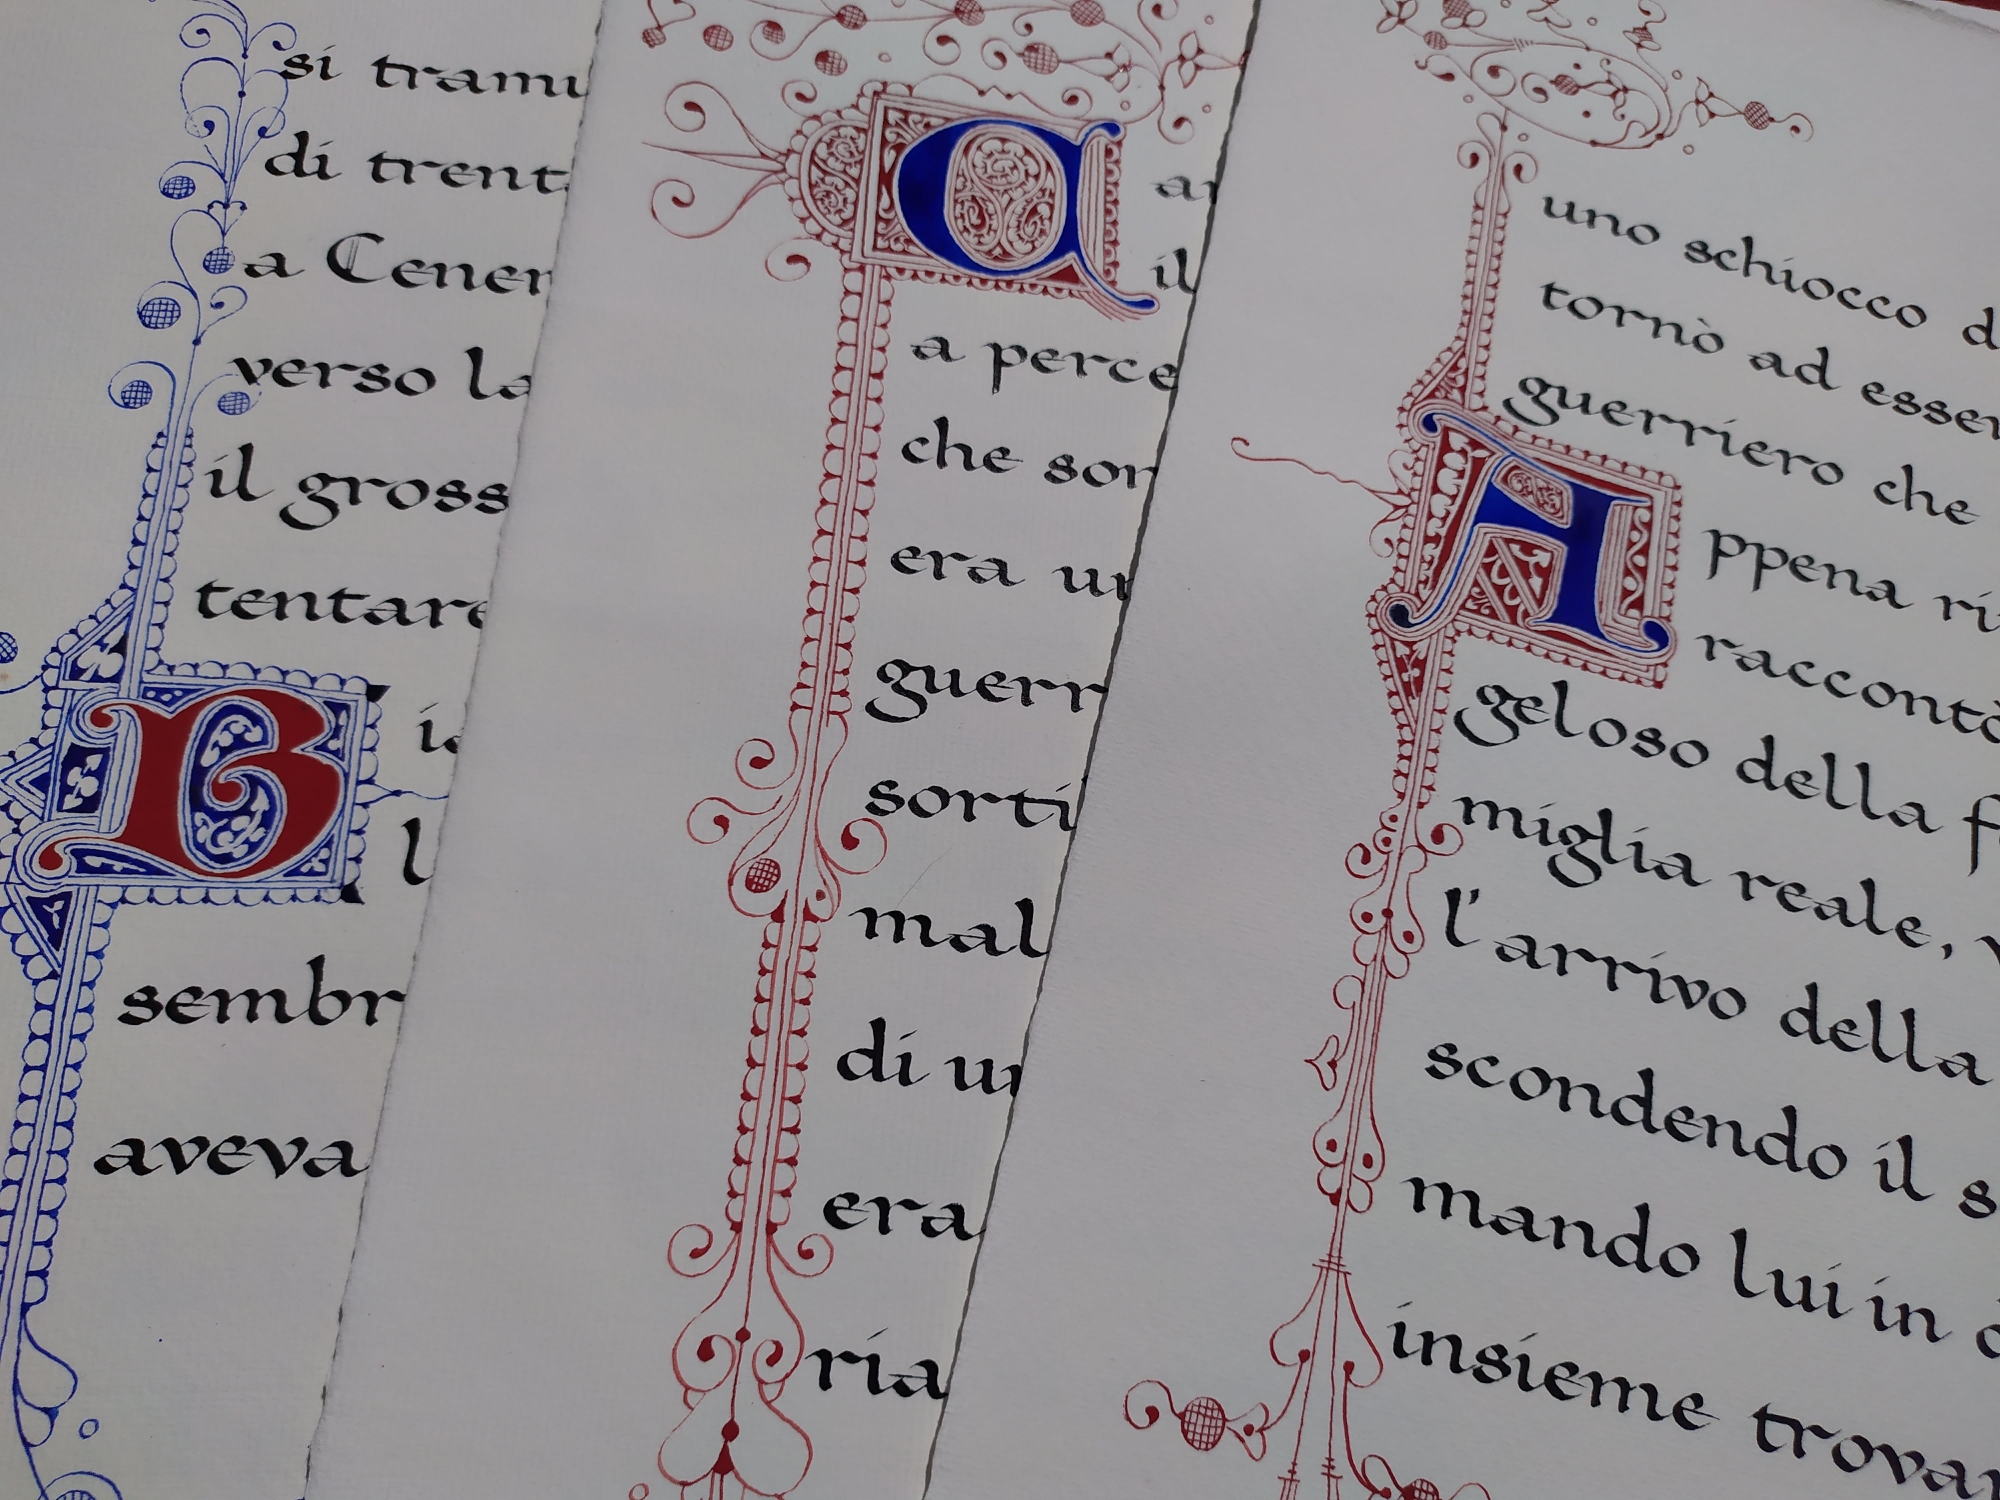 si tramu
di trent
a Cener
verso la
il gross
tentare
B
ia
l
sembr
aveva
A
an
il
a perce
che son
era un
guerr
sorti
mal
di un
era
ria
uno schiocco d
tornò ad esser
guerriero che
A
ppena ri
raccontò
geloso della f
miglia reale, v
l'arrivo della
scondendo il s
mando lui in
insieme trovar